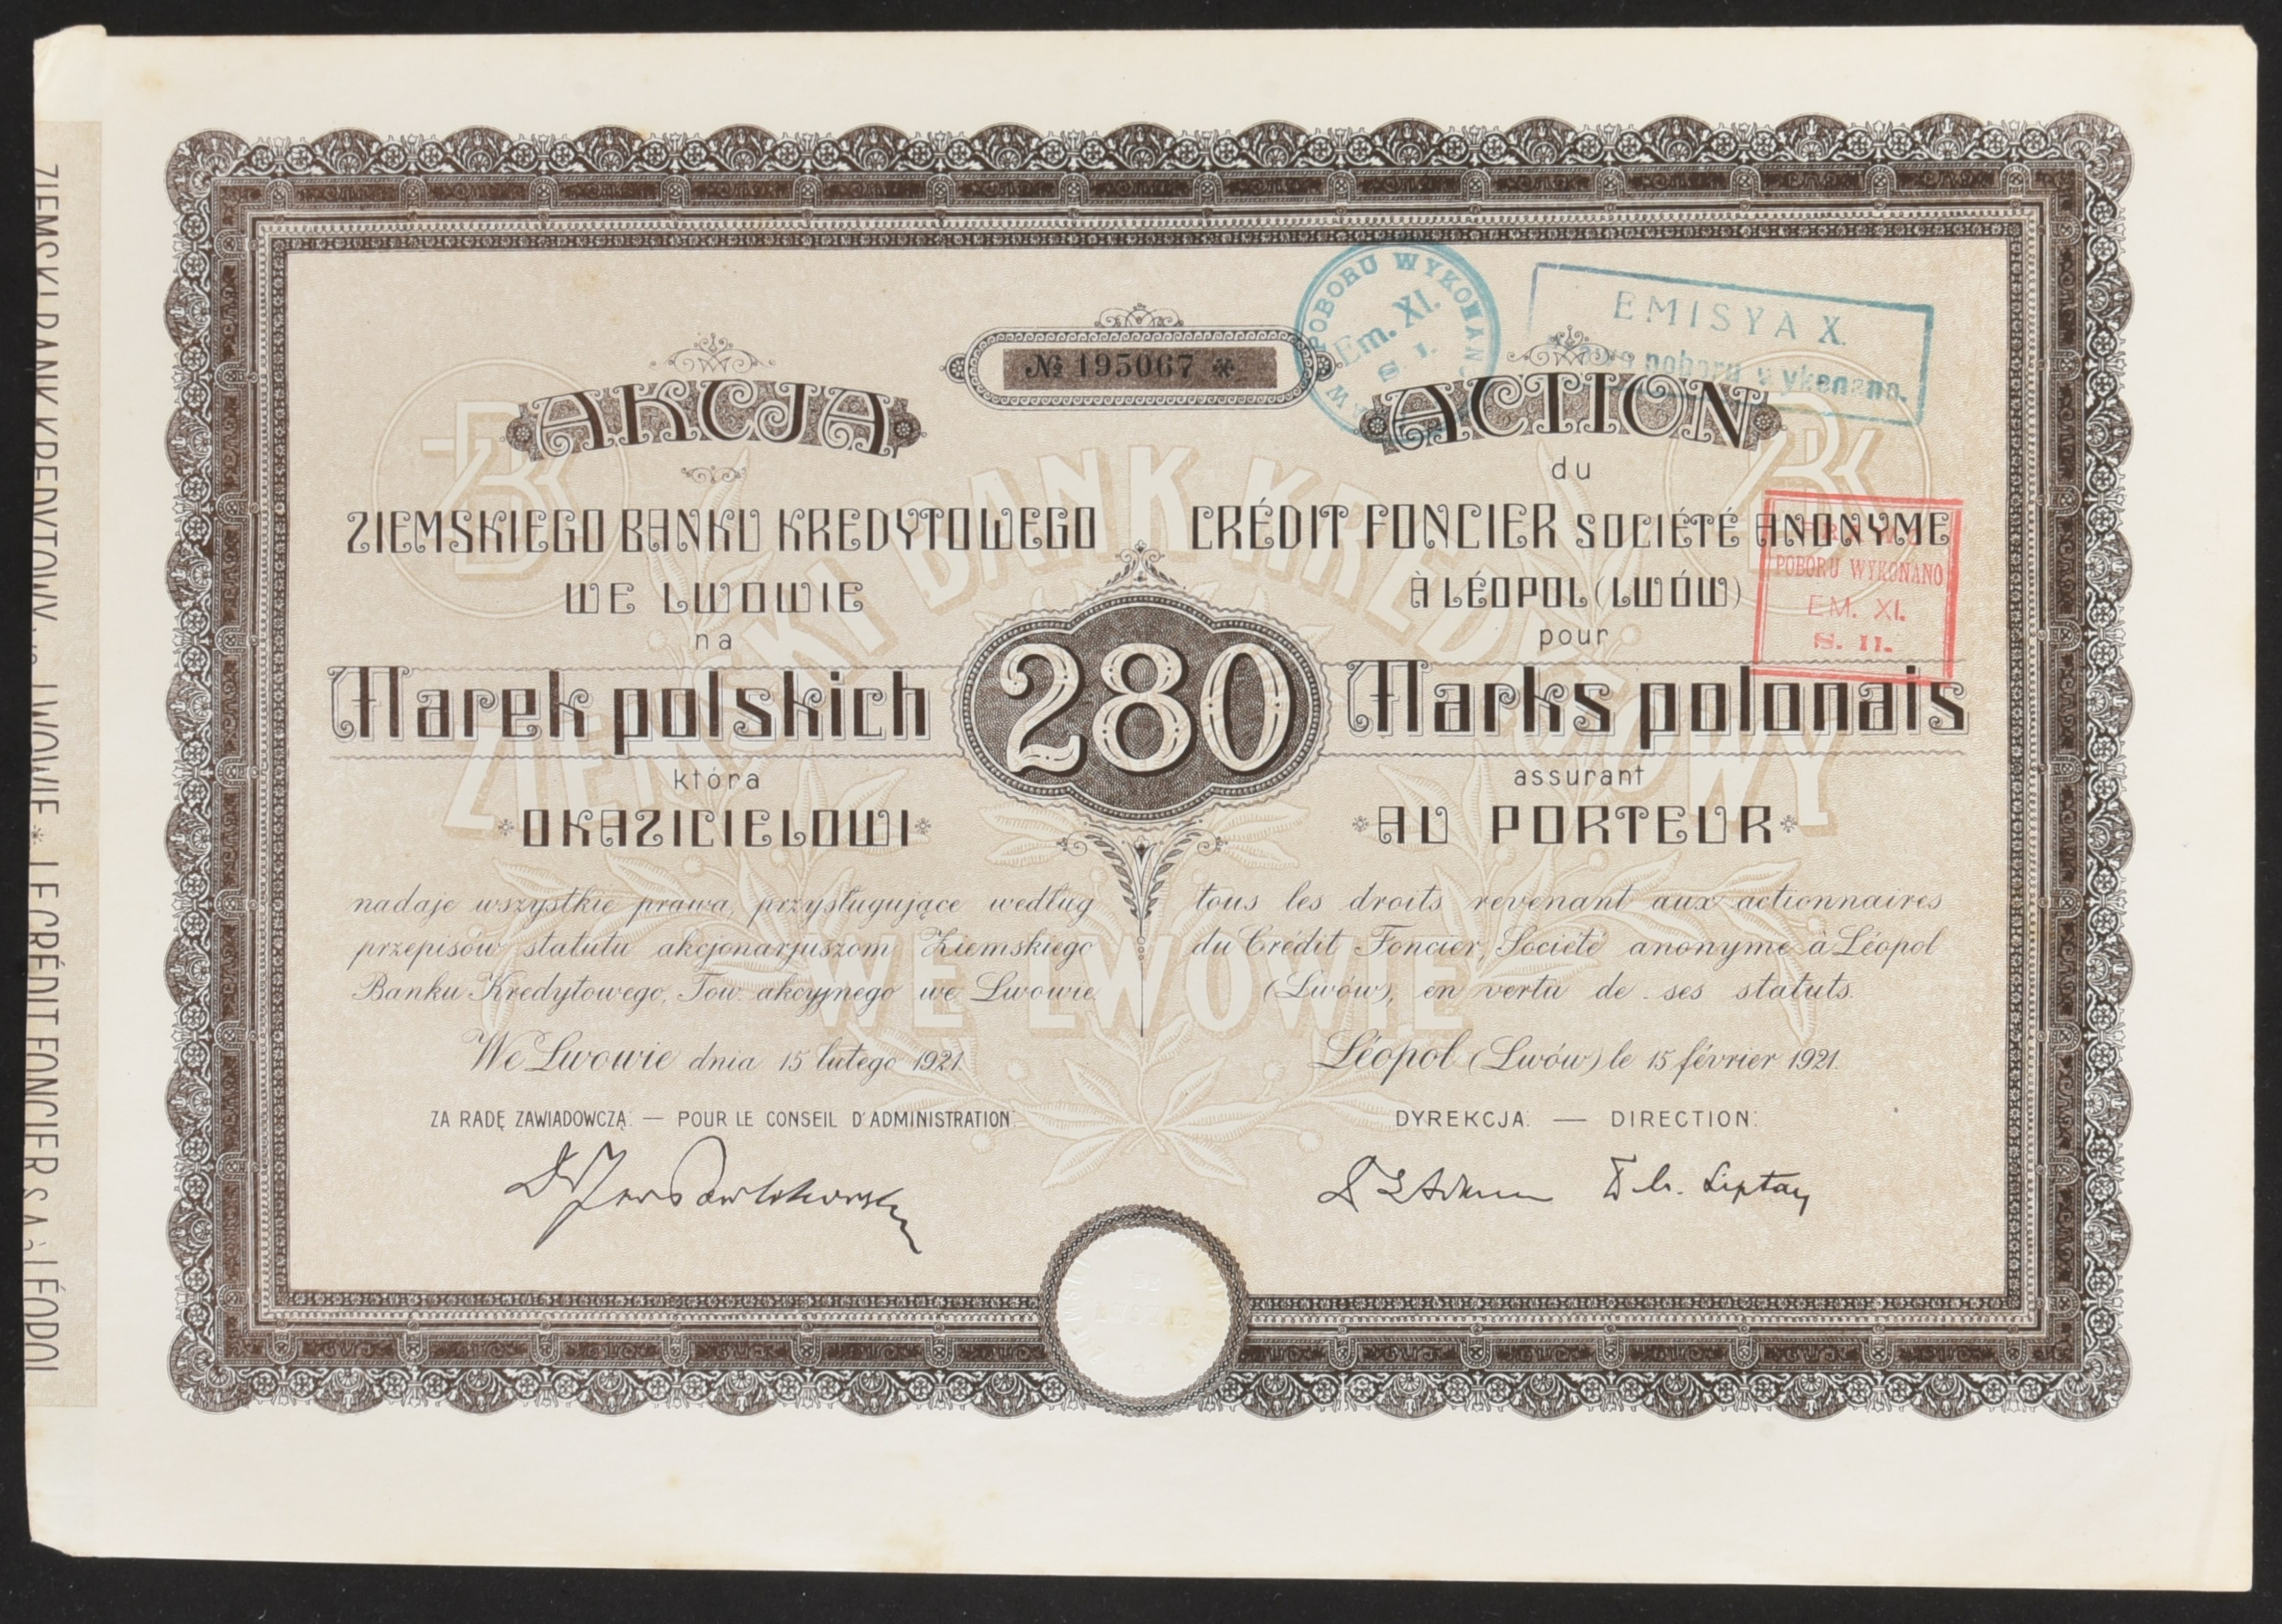 ZIEMSKI BANK KREDYTOWY WE LWOWIE * LE CRÉDIT FONCIER S.A. à LÉOPOL
№ 195067 *
POBORU WYKONANO
Em. XI.
S I.
EMISYA X.
poboru wykonano.
AKCJA
ZIEMSKIEGO BANKU KREDYTOWEGO
WE LWOWIE
na
Marek polskich
która
* OKAZICIELOWI *
nadaje wszystkie prawa, przysługujące według
przepisów statutu akcjonarjuszom Ziemskiego
Banku Kredytowego, Tow. akcyjnego we Lwowie.
We Lwowie dnia 15 lutego 1921.
ZA RADĘ ZAWIADOWCZĄ: — POUR LE CONSEIL D'ADMINISTRATION:
280
ACTION
du
CRÉDIT FONCIER SOCIÉTÉ ANONYME
À LÉOPOL (LWÓW)
pour
Marks polonais
assurant
* AU PORTEUR *
tous les droits revenant aux actionnaires
du Crédit Foncier, Société anonyme à Léopol
(Lwów), en vertu de ses statuts.
Léopol (Lwów) le 15 février 1921.
DYREKCJA: — DIRECTION:
Liptay
POBORU WYKONANO
EM. XI.
S. II.
ZIEMSKI BANK KREDYTOWY
WE LWOWIE
ZBK
ZBK